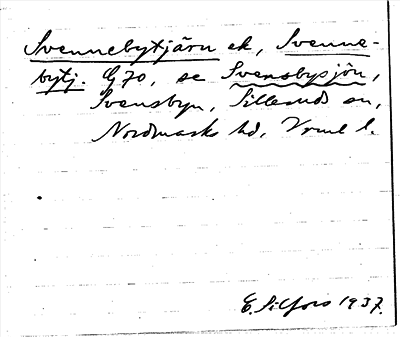 Svennebytjärn ek, Svenne-
bytj. G 70, se Svensbysjön,
Svensbyn, Sillerud sn,
Nordmarks hd, Vrml l.
E. Silfors 1937.